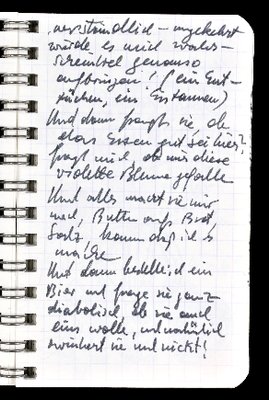 verständlich – umgekehrt
würde es mich wahr-
scheinlich genauso
aufbringen! (ein Ent-
zücken, ein Erstaunen)
Und dann fragt sie, ob
das Essen gut sei hier?
fragt mich, ob mir diese
violette Blume gefalle
Und alles macht sie mir
nach, Butter aufs Brot
Salz, kaum daß ich's
mache
Und dann bestelle ich ein
Bier und frage sie ganz
diabolisch, ob sie auch
eins wolle, und natürlich
sie und nickt!